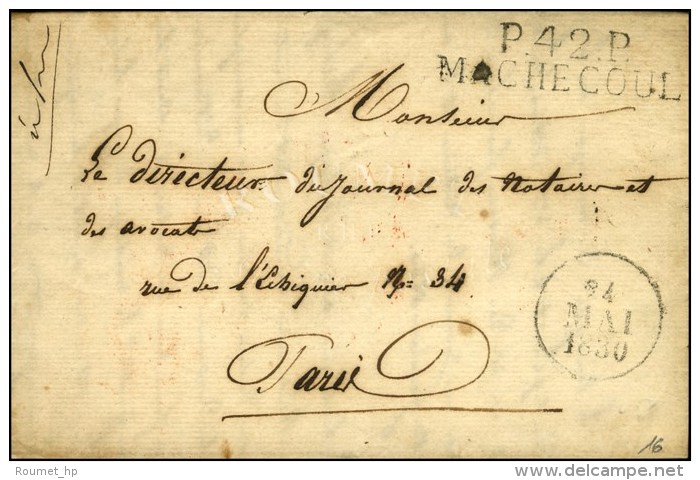 P.42.P.
MACHECOUL
Monsieur
Le directeur du Journal des Notaires et
des avocats
rue de l'Echiquier N= 34
Paris
24
MAI
1830
16
Roumet_hp
www.delcampe.net